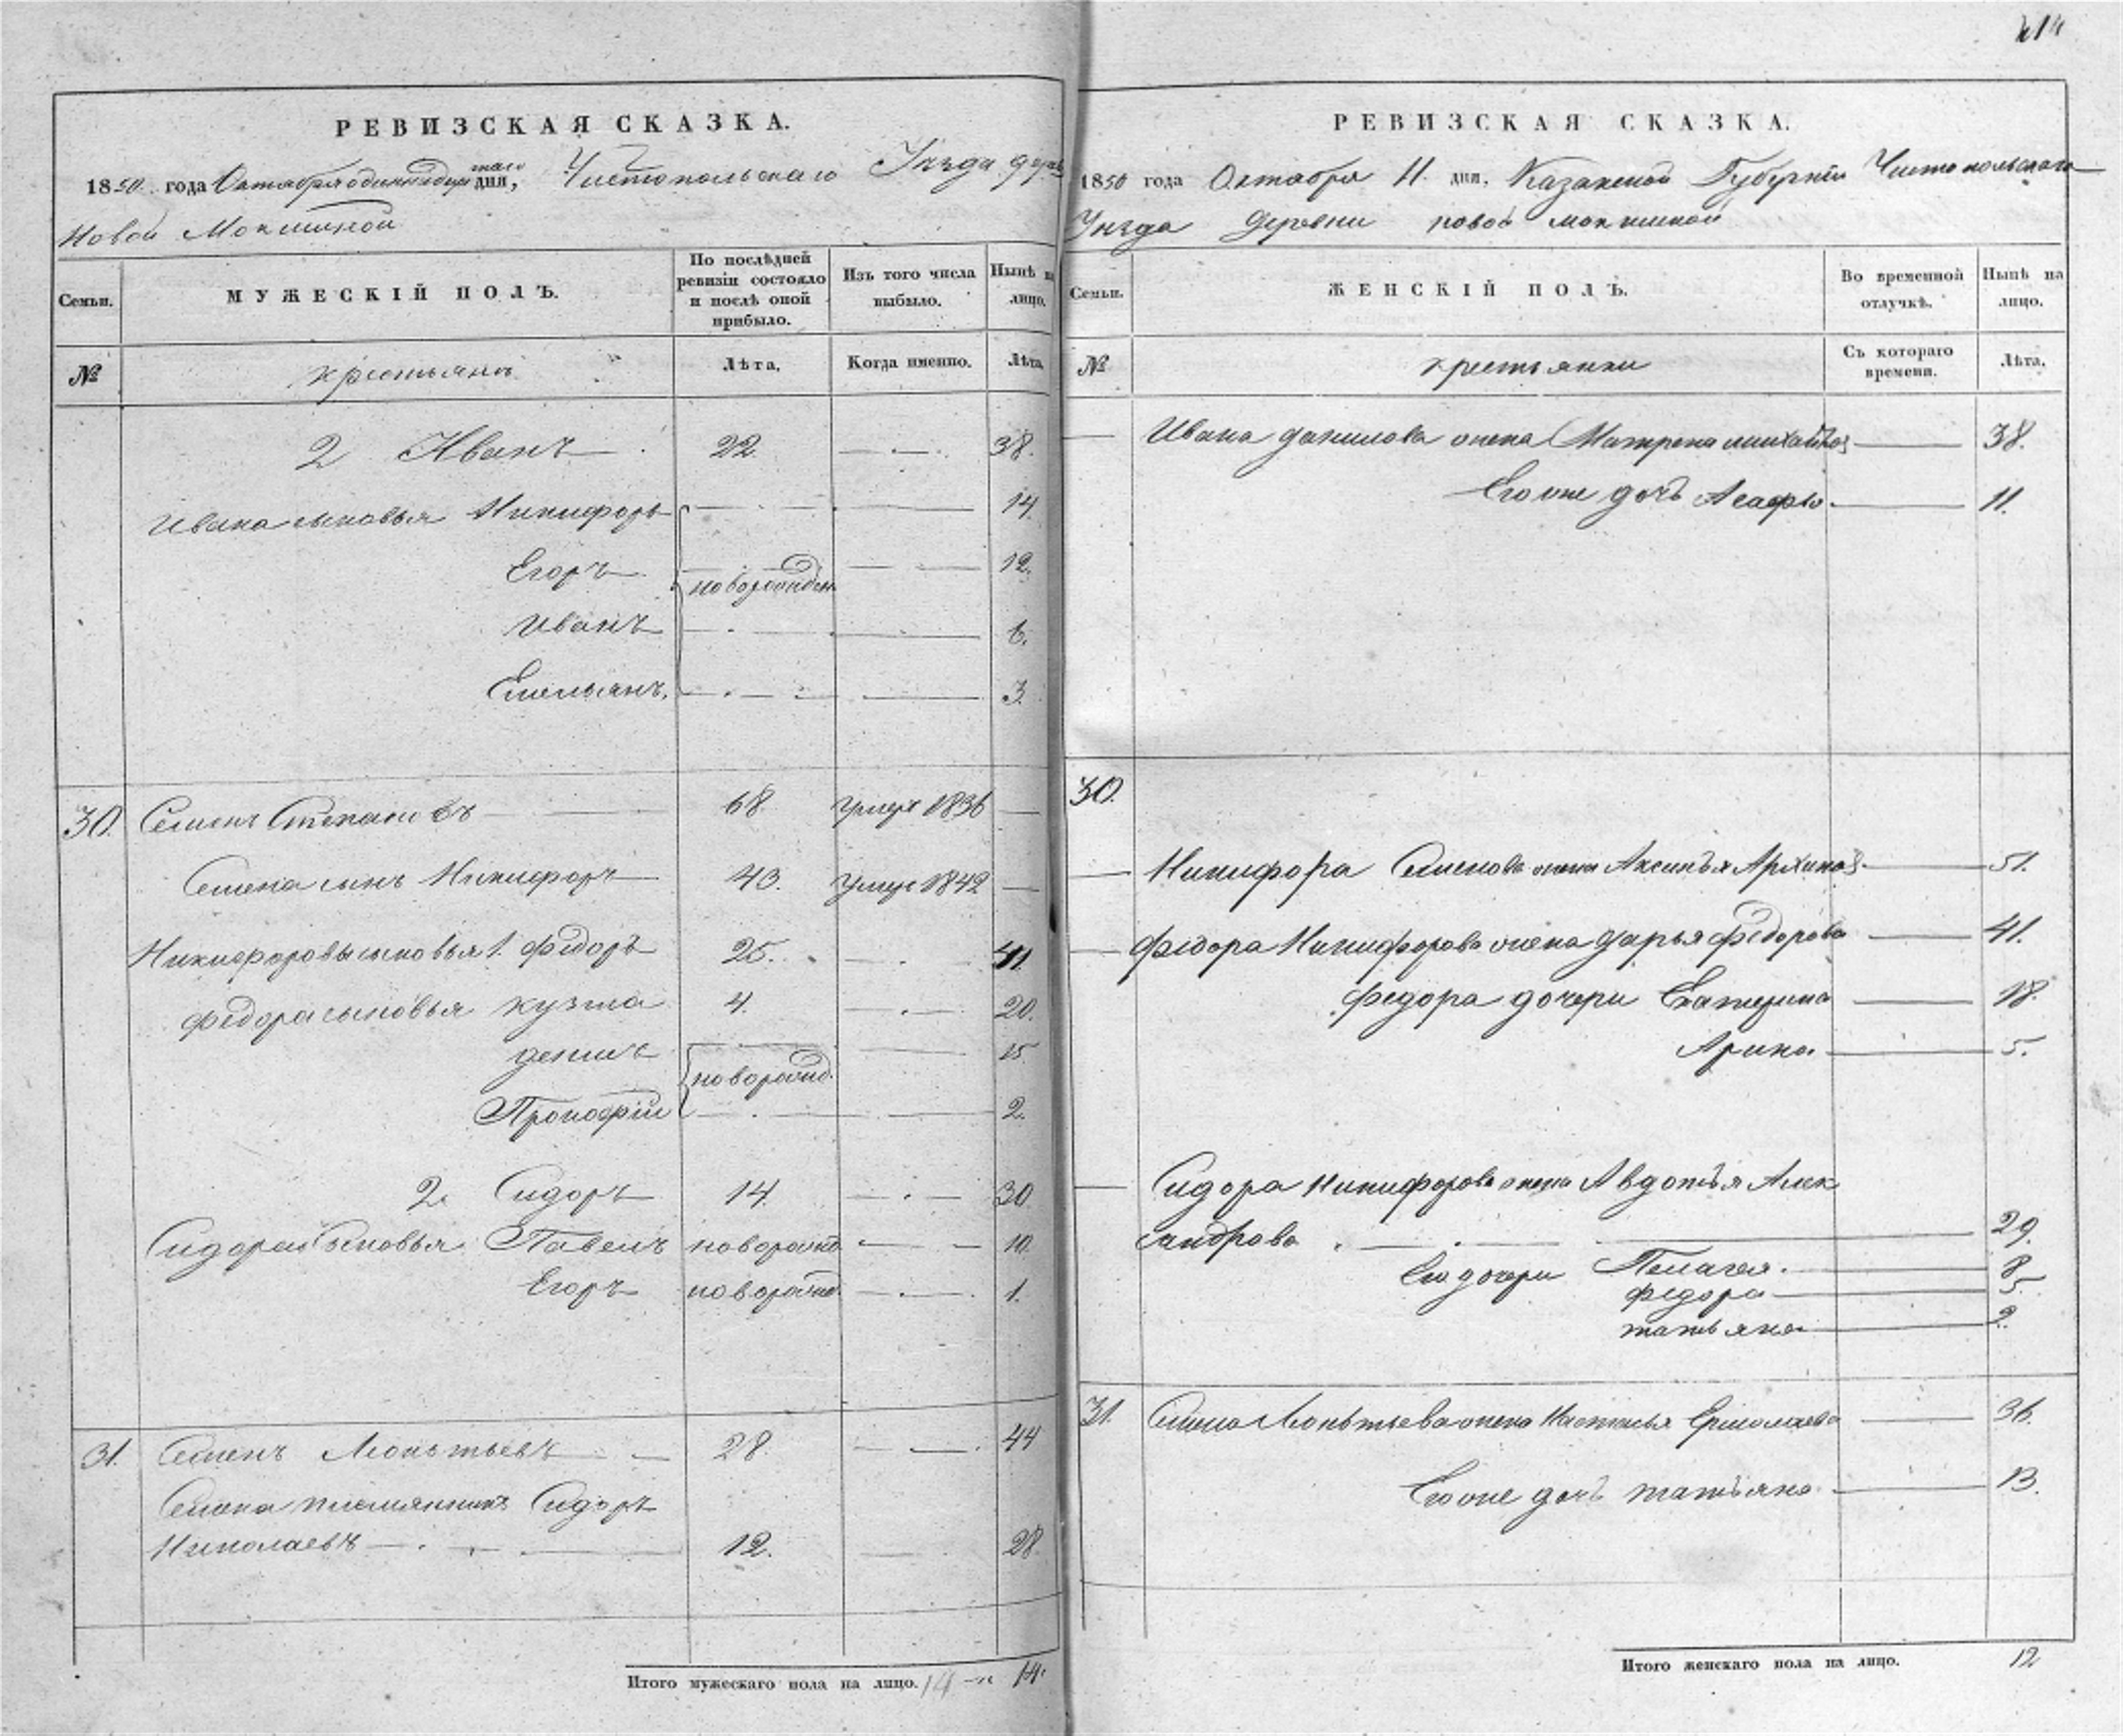 РЕВИЗСКАЯ СКАЗКА.
1850 года Октября одиннадцатаго дня, Чистопольскаго Уезда дерев
Новой Мокшиной
Семьи.
МУЖЕСКІЙ ПОЛЪ.
По послѣдней ревизіи состояло и послѣ оной прибыло.
Изъ того числа выбыло.
Нынѣ на лицо.
№
крестьянъ
Лѣта,
Когда именно.
Лѣта,
2 Иванъ 22 38.
Ивана сыновья Никифоръ 14
Егоръ новорожден 12.
Иванъ 6.
Емельянъ. 3.
30. Семенъ Степановъ 68. умеръ 1836
Семена сынъ Никифоръ 43. умер 1842
Никифоровы сыновья 1. Федоръ 25. 41
Федора сыновья Кузма 4. 20.
денисъ 15
новорожд.
Прокофій 2.
2. Сидоръ 14. 30
Сидора Сыновья Павелъ новорожд 10.
Егоръ новорожд. 1.
31. Семенъ Леонтьевъ 28. 44
Семена племянникъ Сидоръ
Николаевъ 12. 28
Итого мужескаго пола на лицо. 14 14.
РЕВИЗСКАЯ СКАЗКА.
1850 года Октября 11. дня, Казанской Губерніи Чистопольскаго
Уезда Деревни новой мокшиной
Семьи.
ЖЕНСКІЙ ПОЛЪ.
Во временной отлучкѣ.
Нынѣ на лицо.
№
крестьянки
Съ котораго времени.
Лѣта.
Ивана данилова жена Матрена михайлов 38.
Егоже дочь Агафья 11.
30.
Никифора Семенова жена Аксинья Архипов 51.
Федора Никифорова жена дарья Федорова 41.
Федора дочери Екатерина 18.
Арина 5.
Сидора Никифорова жена Авдотья Алек
сандрова 29.
Его дочери Пелагея. 8
Федора 5.
татьяна 2.
31. Семена Леонтьева жена Настасья Ермолаева 36.
Егоже дочь татьяна 13.
Итого женскаго пола на лицо. 12